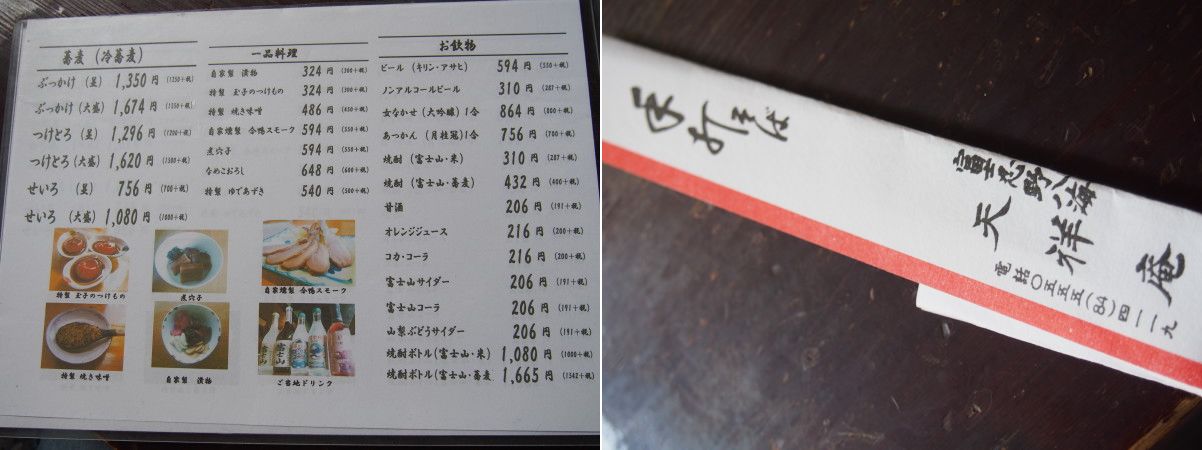 蕎麦（冷蕎麦）
ぶっかけ（並） 1,350 円 (1250+税)
ぶっかけ（大盛） 1,674 円 (1550+税)
つけとろ（並） 1,296 円 (1200+税)
つけとろ（大盛） 1,620 円 (1500+税)
せいろ（並） 756 円 (700+税)
せいろ（大盛） 1,080 円 (1000+税)
一品料理
自家製 漬物 324 円 (300+税)
特製 玉子のつけもの 324 円 (300+税)
特製 焼き味噌 486 円 (450+税)
自家燻製 合鴨スモーク 594 円 (550+税)
煮穴子 594 円 (550+税)
なめこおろし 648 円 (600+税)
特製 ゆであずき 540 円 (500+税)
お飲物
ビール（キリン・アサヒ） 594 円 (550+税)
ノンアルコールビール 310 円 (287+税)
女なかせ（大吟醸）1合 864 円 (800+税)
あつかん（月桂冠）1合 756 円 (700+税)
焼酎（富士山・米） 310 円 (287+税)
焼酎（富士山・蕎麦） 432 円 (400+税)
甘酒 206 円 (191+税)
オレンジジュース 216 円 (200+税)
コカ・コーラ 216 円 (200+税)
富士山サイダー 206 円 (191+税)
富士山コーラ 206 円 (191+税)
山梨ぶどうサイダー 206 円 (191+税)
焼酎ボトル（富士山・米） 1,080 円 (1000+税)
焼酎ボトル（富士山・蕎麦 1,665 円 (1542+税)
特製 玉子のつけもの
煮穴子
自家燻製 合鴨スモーク
特製 焼き味噌
自家製 漬物
ご当地ドリンク
富士山
手打そば
富士忍野八海
天祥庵
電話〇五五五(84)四一一九